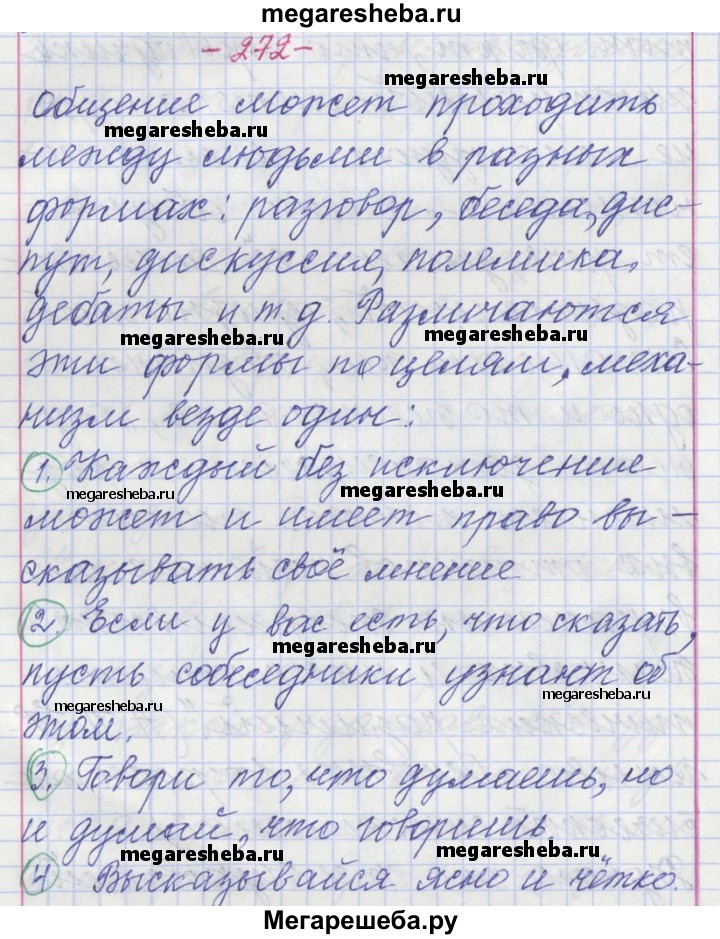 megaresheba.ru
- 272 -
megaresheba.ru
Общение может проходить
megaresheba.ru
между людьми в разных
формах: разговор, беседа, дис-
пут, дискуссия, полемика,
дебаты и т.д. Различаются
megaresheba.ru megaresheba.ru
эти формы по целям, меха-
низм везде один:
1. Каждый без исключения
megaresheba.ru megaresheba.ru
может и имеет право вы-
сказывать своё мнение
2. Если у вас есть, что сказать,
megaresheba.ru
пусть собеседники узнают об
megaresheba.ru megaresheba.ru
этом.
3. Говори то, что думаешь, но
и думай, что говоришь.
megaresheba.ru megaresheba.ru
4 Высказывайся ясно и чётко.
Мегарешеба.ру